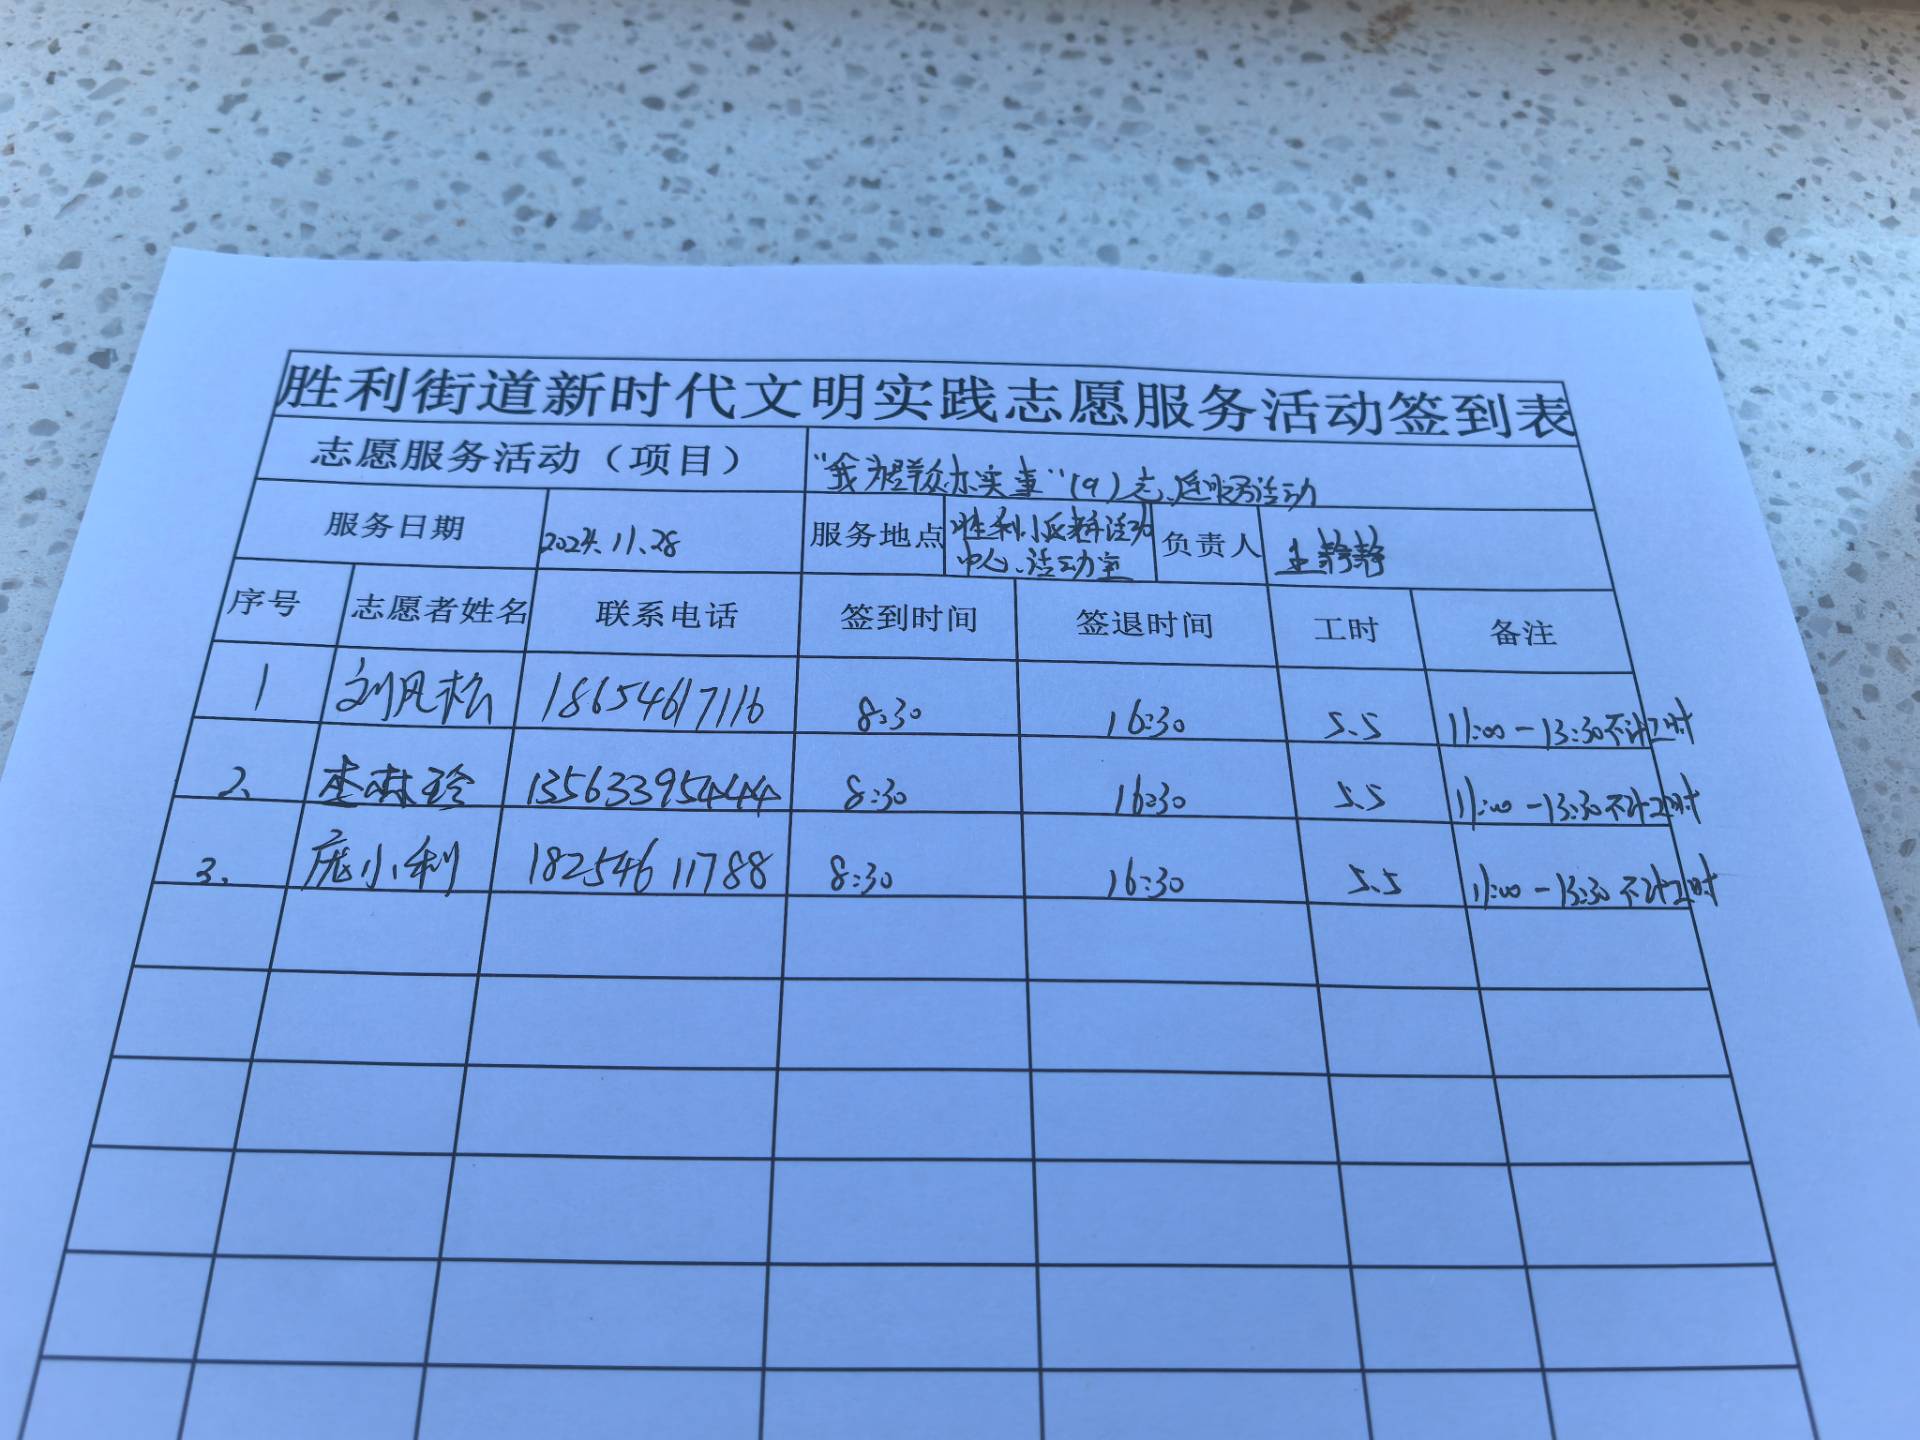 胜利街道新时代文明实践志愿服务活动签到表
志愿服务活动（项目） "我为群众办实事"(9)志愿服务活动
服务日期 2024.11.28 服务地点 胜利小区老年活动中心、活动室 负责人 王静静
序号 志愿者姓名 联系电话 签到时间 签退时间 工时 备注
1 刘凤松 18654617116 8:30 16:30 5.5 11:00-13:30不计工时
2、 李林玲 13563395444 8:30 16:30 5.5 11:00-13:30不计工时
3、 庞小利 18254611788 8:30 16:30 5.5 11:00-13:30不计工时